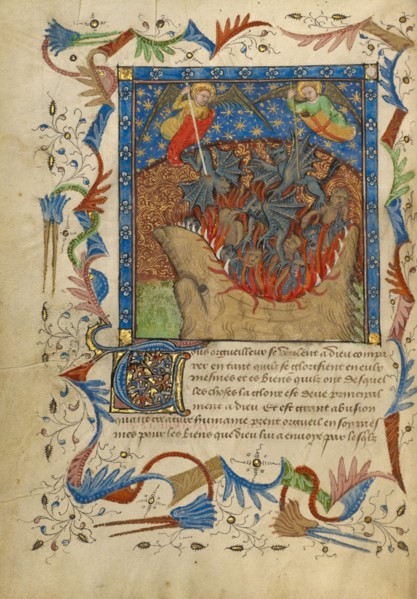 Tous orgueilleux se veulent a dieu compa
rer en tant quilz se glorifient en eulx
mesmes et es biens quilz ont desquel
les choses la gloire est deue principal
ment a dieu Et est grant abusion
quant creature humaine prent orgueil en
mes pour les biens que dieu lui a envoye